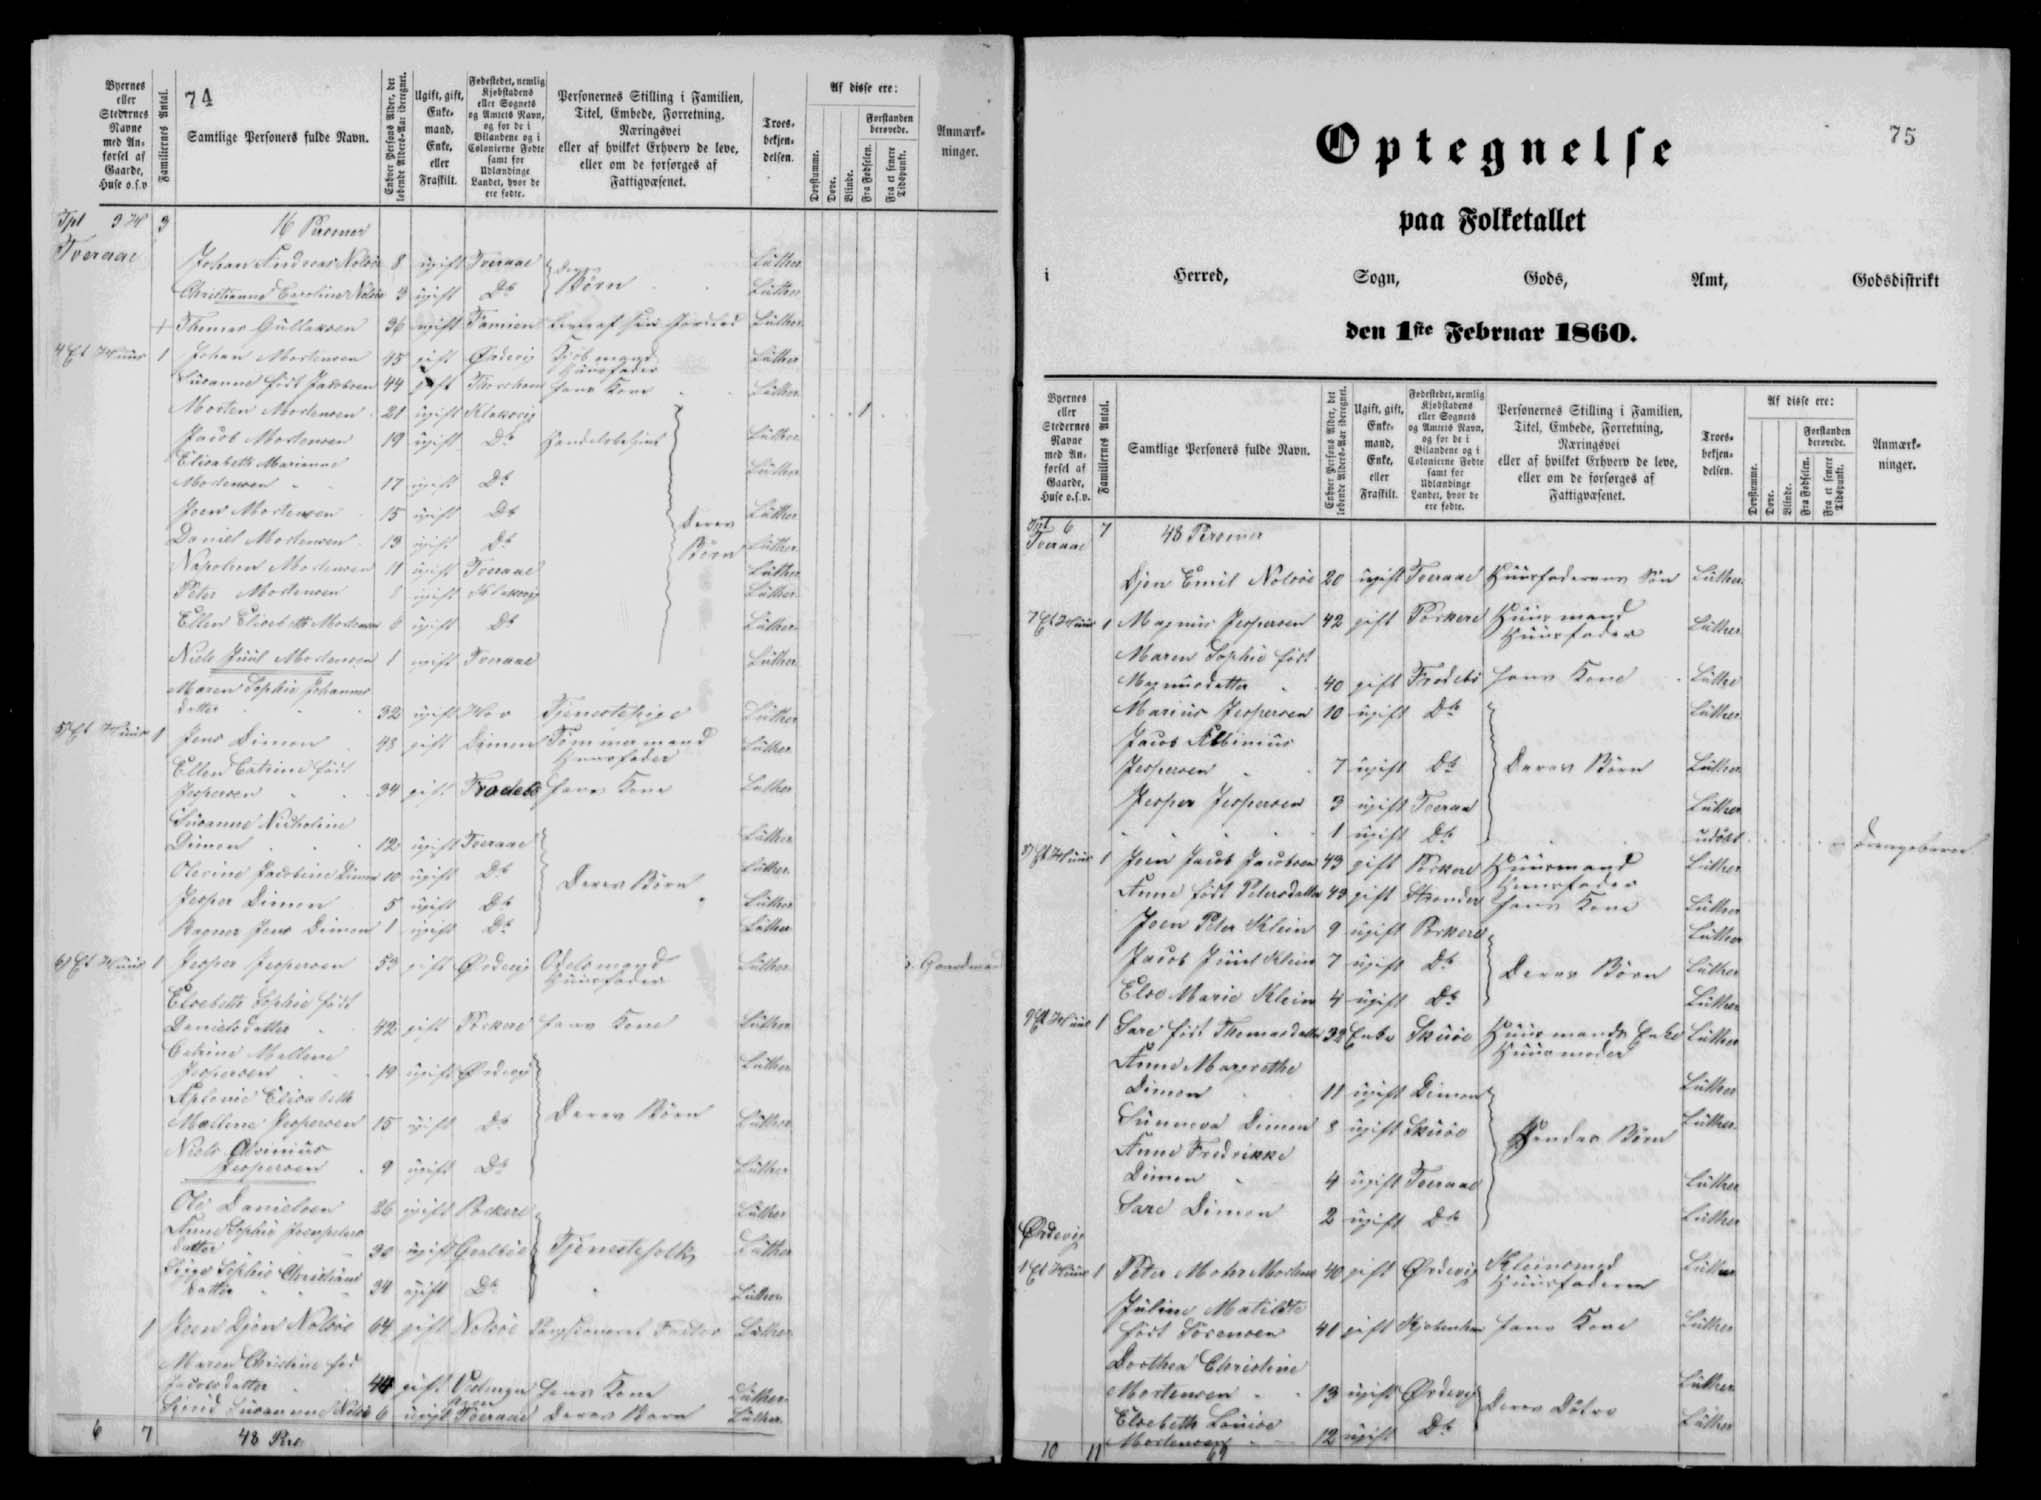 74
Byernes eller Stedernes Navne med Anførsel af Gaarde, Huse o.s.v
Familiernes Antal.
Samtlige Personers fulde Navn.
Enhver Persons Alder, det løbende Alders-Aar iberegnet.
Ugift, gift, Enkemand, Enke, eller Fraskilt.
Fødestedet, nemlig Kjøbstadens eller Sognets og Amtets Navn, og for de i Bilandene og i Colonierne Fødte samt for Udlændinge Landet, hvor de ere fødte.
Personernes Stilling i Familien, Titel, Embede, Forretning, Næringsvei eller af hvilket Erhverv de leve, eller om de forsørges af Fattigvæsenet.
Troesbekjendelsen.
Af disse ere:
Døvstumme.
Døve.
Blinde.
Forstanden berøvede.
Fra Fødselen.
Fra et senere Tidspunkt.
Anmærkninger.
Tpt 3 H 3 16 Personer
Tveraae
Johan Andreas Nolsöe 8 ugift Tveraae deres Børn Luther
Christianne Caroline Nolsöe 3 ugift Do Luther
+ Thomas Gullaksen 36 ugift Famien Lever af sin Jordlod Luther
4 Et Huus 1 Johan Mortensen 45 gift Ørdevig Kjøbmand Huusfader Luther
Susanne født Jacobsen 44 gift Thorshavn hans Kone Luther
Morten Mortensen 21 ugift Klaksvig 1
Jacob Mortensen 19 ugift Do Handelsbetjent Luther
Elisabeth Marianne
Mortensen 17 ugift Do Luther
Joen Mortensen 15 ugift Do Luther
Daniel Mortensen 13 ugift Do Deres Børn Luther
Napoleon Mortensen 11 ugift Tveraae Luther
Peter Mortensen 8 ugift Klaksvig Luther
Ellen Elisabeth Mortensen 6 ugift Do Luther
Niels Juul Mortensen 1 ugift Tveraae Luther
Maren Sophie Johannes
datter 32 ugift Hov Tjenestepige Luther
5 Et Huus 1 Jens Dimon 48 gift Dimon Tømmermand Huusfader Luther
Ellen Catrine født
Jespersen 34 gift Frodebö hans Kone Luther
Susanne Nicholine
Dimon 12 ugift Tveraae Luther
Olevine Jacobine Dimon 10 ugift Do Deres Børn Luther
Jesper Dimon 5 ugift Do Luther
Ragner Jens Dimon 1 ugift Do Luther
6 Et Huus 1 Jesper Jespersen 53 gift Ørdevig Odelsmand Huusfader Luther Gaardmand
Elsebeth Sophie født
Danielsdatter 42 gift Porkere hans Kone Luther
Catrine Mallene
Jespersen 19 ugift Ørdevig Luther
Aplonie Elisabeth
Mallene Jespersen 15 ugift Do Deres Børn Luther
Niels Alvinius
Jespersen 9 ugift Do Luther
Ole Danielsen 26 ugift Porkere Luther
Anne Sophie Joenpeters
datter 30 ugift Tjenestefolk Luther
Sophie Christians
datter 34 ugift Do Luther
1 Joen Djon Nolsöe 64 gift Nolsöe Pensioneret Factor Luther
Maren Christine fød
Jacobsdatter 44 gift hans Kone Luther
Susanne Nolsöe 6 ugift Tveraae Deres Barn Luther
6 7 48 Prs
75
Optegnelse
paa Folketallet
i Herred, Sogn, Gods, Amt, Godsdistrikt
den 1ste Februar 1860.
Byernes eller Stedernes Navne med Anførsel af Gaarde, Huse o.s.v.
Familiernes Antal.
Samtlige Personers fulde Navn.
Enhver Persons Alder, det løbende Alders-Aar iberegnet.
Ugift, gift, Enkemand, Enke, eller Fraskilt.
Fødestedet, nemlig Kjøbstadens eller Sognets og Amtets Navn, og for de i Bilandene og i Colonierne Fødte samt for Udlændinge Landet, hvor de ere fødte.
Personernes Stilling i Familien, Titel, Embede, Forretning, Næringsvei eller af hvilket Erhverv de leve, eller om de forsørges af Fattigvæsenet.
Troesbekjendelsen.
Af disse ere:
Døvstumme.
Døve.
Blinde.
Forstanden berøvede.
Fra Fødselen.
Fra et senere Tidspunkt.
Anmærkninger.
Tpt 6 7 48 Personer
Tveraae
Djon Emil Nolsöe 20 ugift Tveraae Huusfaderens Søn Luther
7 Et Huus 1 Magnus Jespersen 42 gift Porkere Huusmand Huusfader Luther
Maren Sophie født
Magnusdatter 40 gift Frodebö hans Kone Luther
Marius Jespersen 10 ugift Do Luther
Jacob Albinius
Jespersen 7 ugift Do Deres Børn Luther
Jesper Jespersen 3 ugift Tveraae Luther
1 ugift Do udøbt Drengebarn
8 Et Huus 1 Joen Jacob Jacobsen 43 gift Porkere Huusmand Huusfader Luther
Anne født Petersdatter 43 gift hans Kone Luther
Joen Peter Klein 9 ugift Porkere Luther
Jacob Juul Klein 7 ugift Do Deres Børn Luther
Else Marie Klein 4 ugift Do Luther
9 Et Huus 1 Sare født Thomasdatter 32 Enke Skuöe Huusmands Enke Huusmoder Luther
Anne Margrethe
Dimon 11 ugift Dimon Luther
Sunneva Dimon 8 ugift Skuöe Hendes Børn Luther
Anne Fredrikke
Dimon 4 ugift Tveraae Luther
Sare Dimon 2 ugift Do Luther
Ørdevig
1 Et Huus 1 Peter Mohr Mortensen 40 gift Ørdevig Kleinsmed Huusfaderen Luther
Juline Matilde
født Sørensen 41 gift Kjøbenhavn hans Kone Luther
Dorthea Christine
Mortensen 13 ugift Ørdevig Deres Døtre Luther
Elsebeth Louise
Mortensen 12 ugift Do Luther
10 11 69